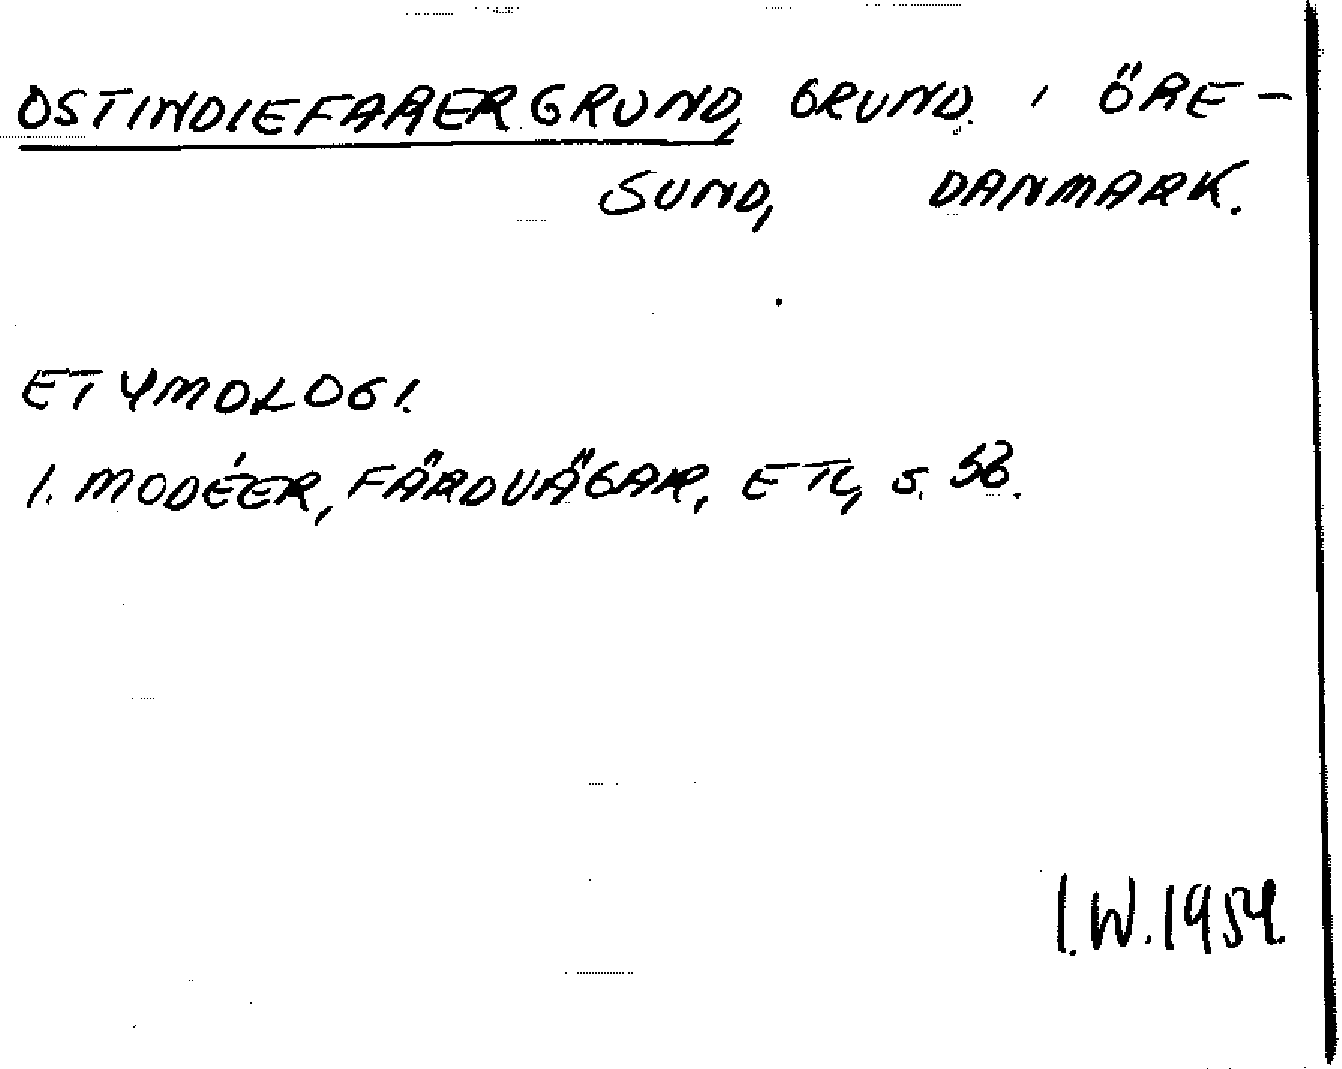 OSTINDIEFARERGRUND, GRUND I ÖRE-
SUND, DANMARK.
ETYMOLOGI.
1. MODÉER, FÄRDVÄGAR, ETC, S. 58.
I.W.1954.